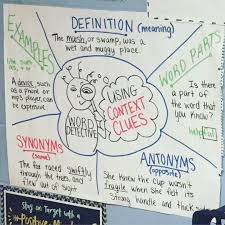 DEFINITION (meaning)
The marsh, or swamp, was a
wet and muggy place.
EXAMPLES
A device, such
as a phone or
mp3 player, can
be expensive
WORD PARTS
Is there
a part of
the word that
you know?
helpful
USING
CONTEXT
CLUES
WORD
DETECTIVE
SYNONYMS
(same)
The fox raced swiftly
through the trees, and
flew out of sight
ANTONYMS
(opposite)
She knew the cup wasn't
fragile when she felt its
strong handle and thick
Stay on Target with a
#Positive